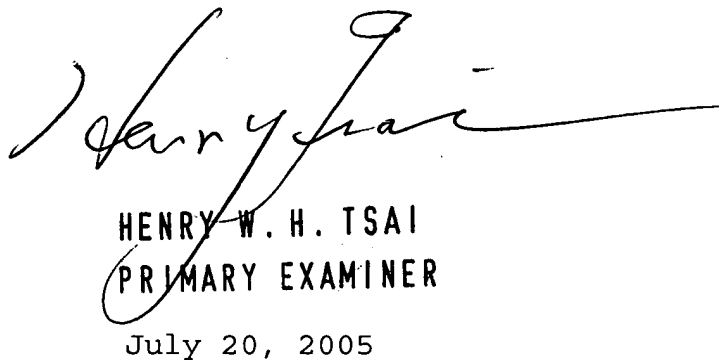 Henry Tsai
HENRY W. H. TSAI
PRIMARY EXAMINER
July 20, 2005